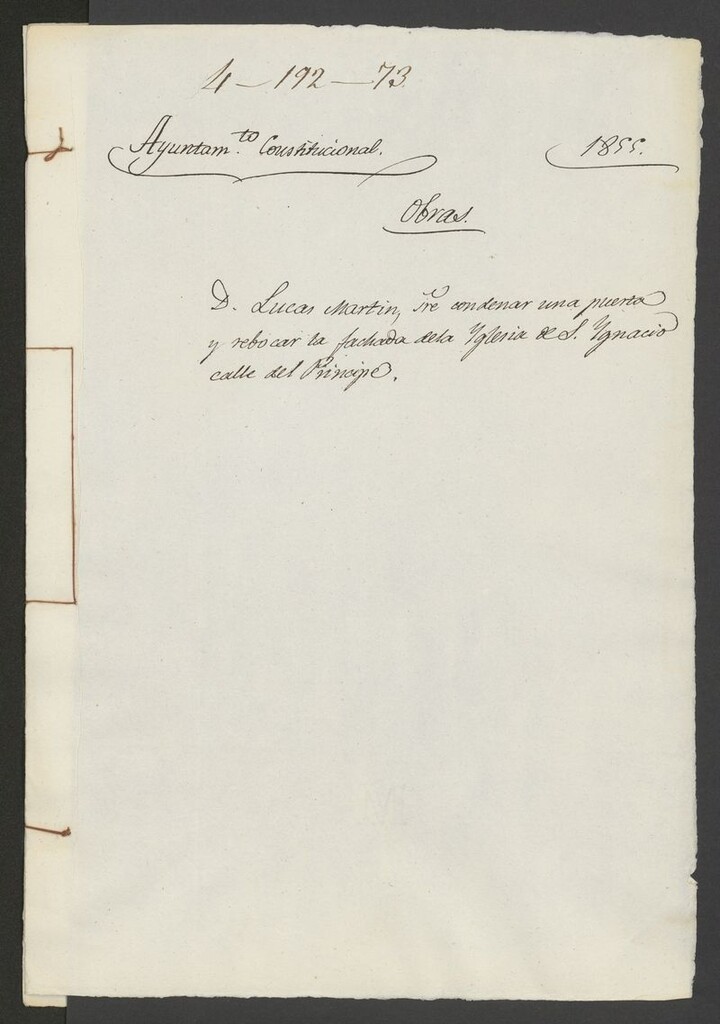 4 - 192 - 73
Ayuntam.to Constitucional. 1855.
Obras.
D. Lucas Martin, sre condenar una puerta
y rebocar la fachada dela Yglesia de S. Ygnacio
calle del Principe.